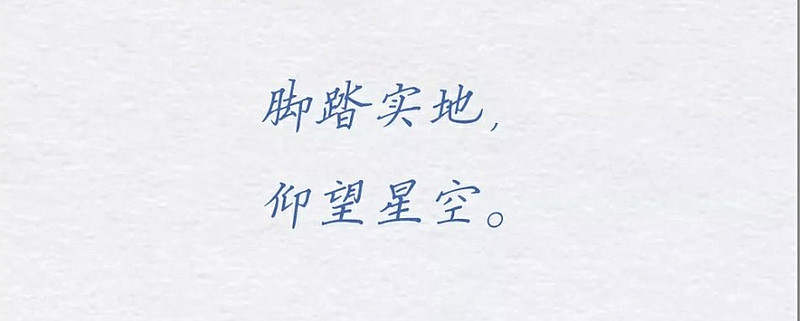 脚踏实地,
仰望星空。